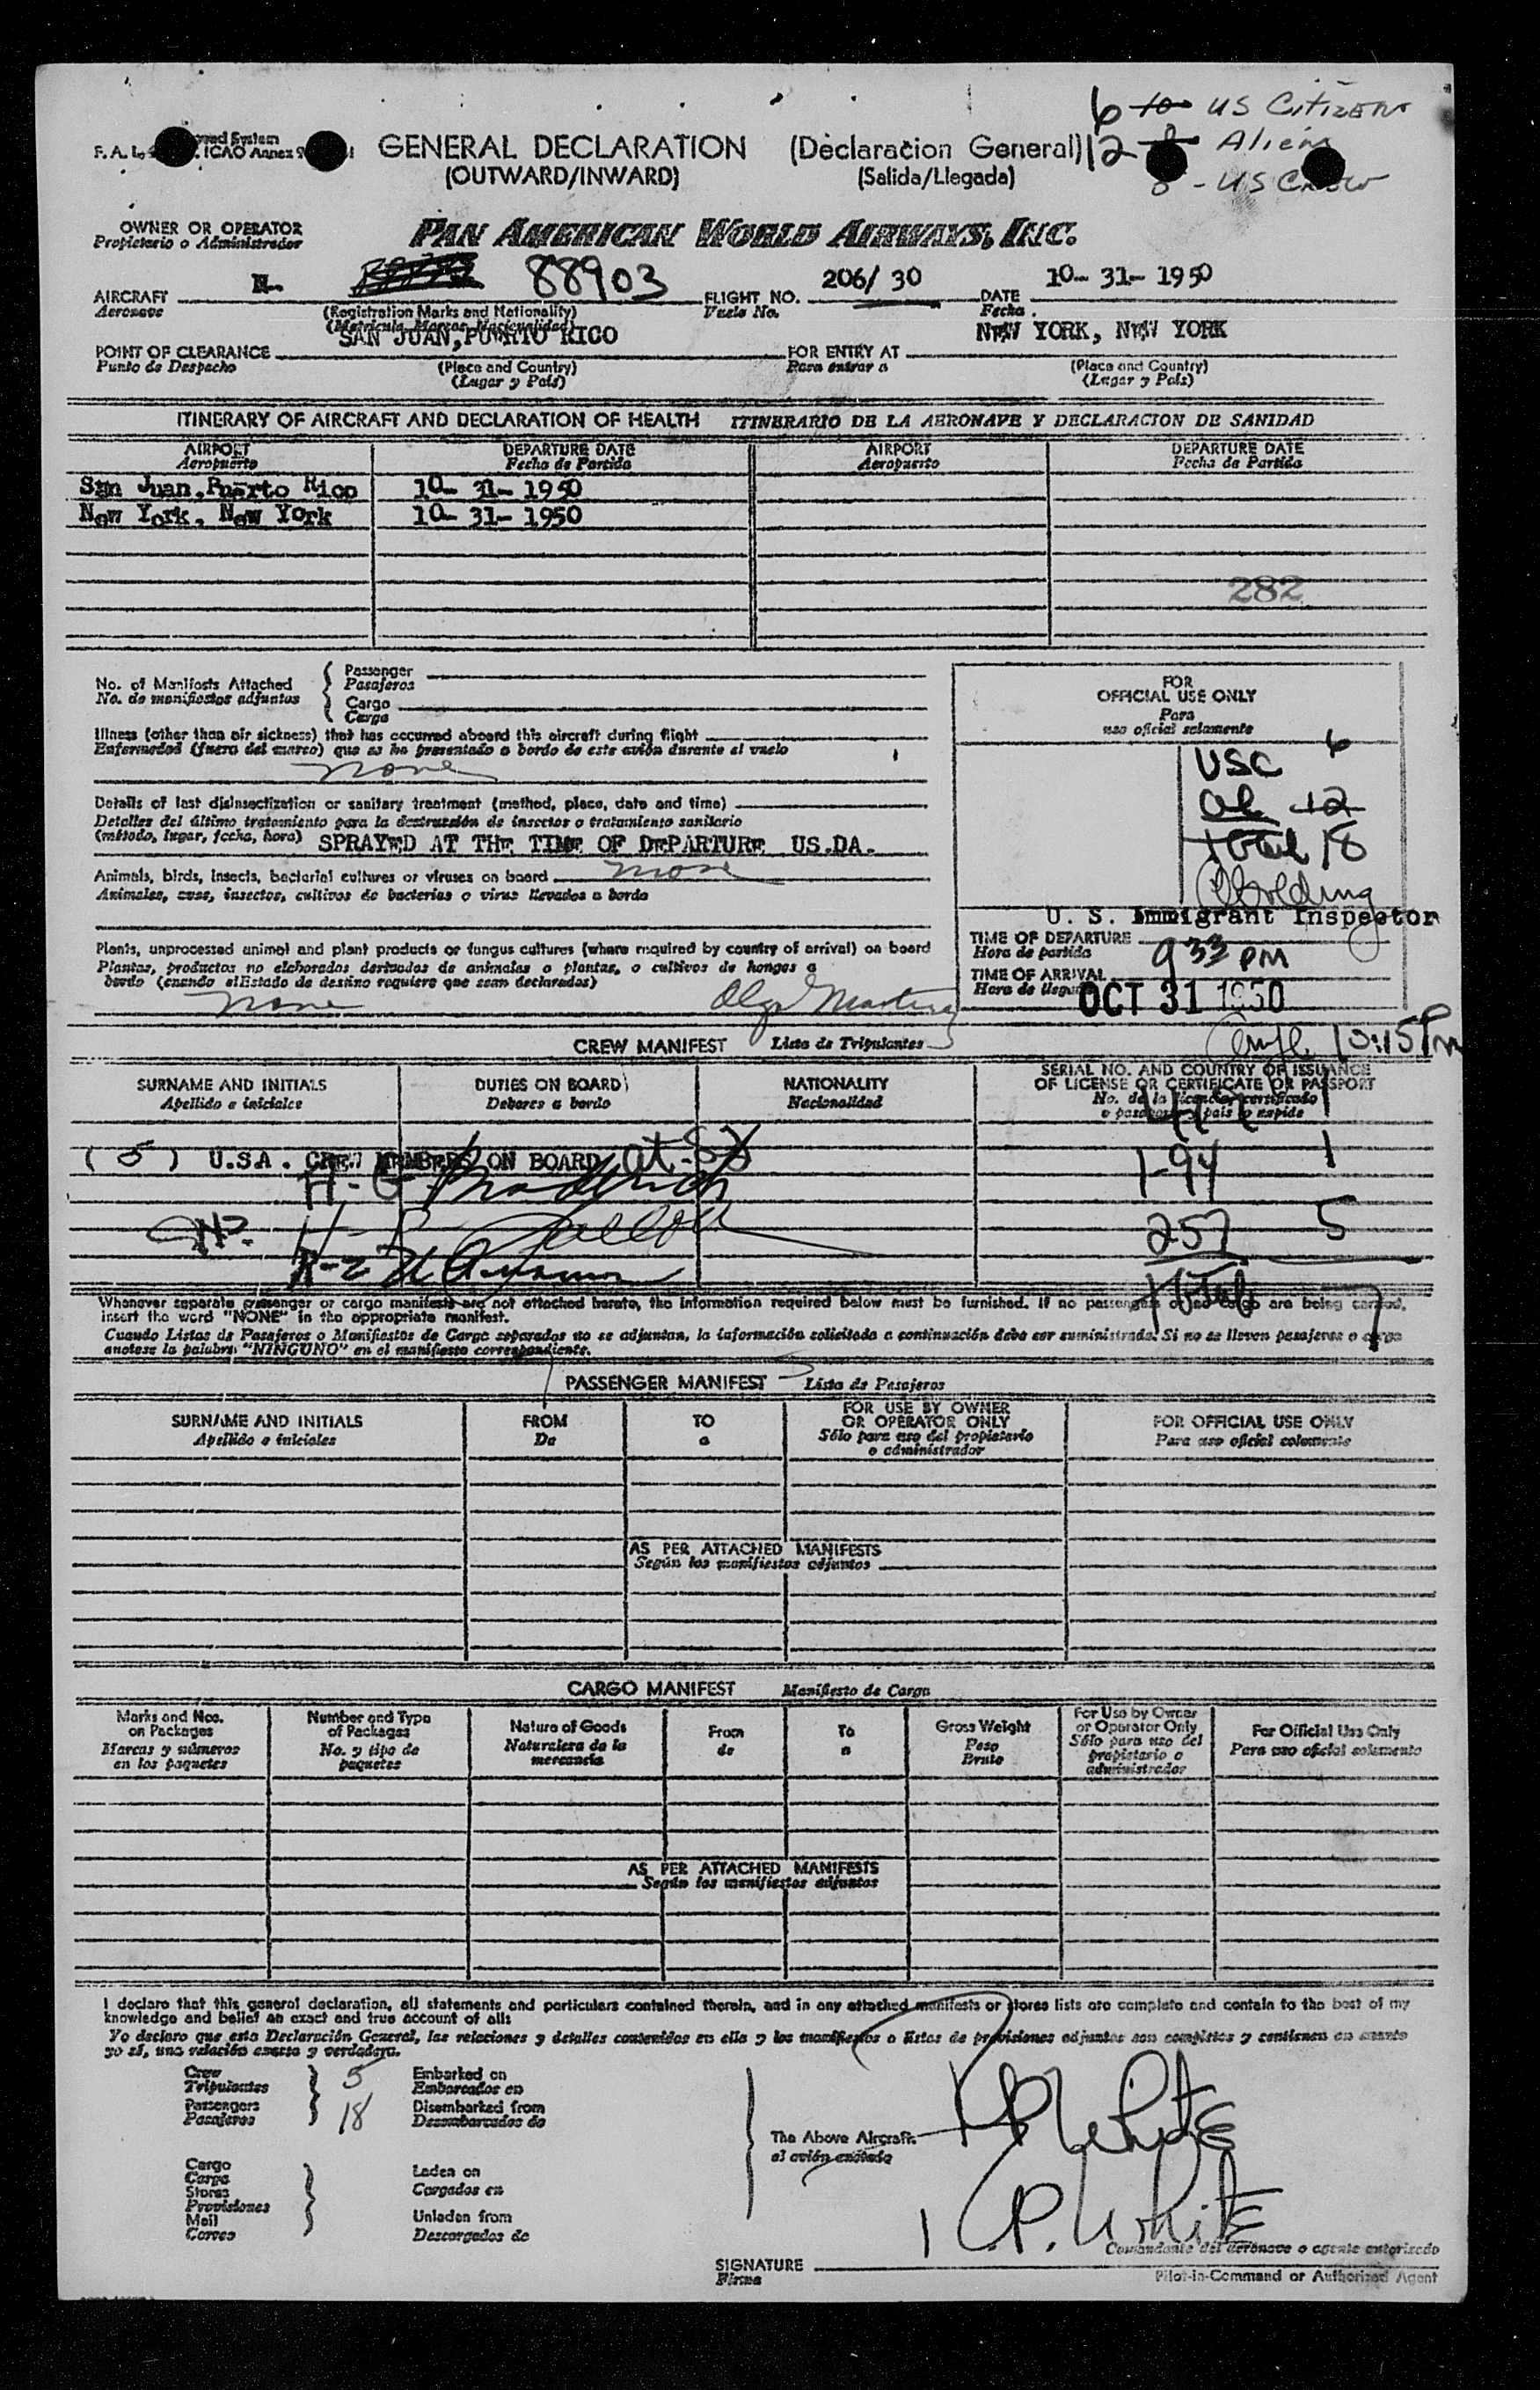 6 10 US Citizens
12 8 Aliens
- US Crew
GENERAL DECLARATION (Declaración General)
(OUTWARD/INWARD) (Salida/Llegada)
OWNER OR OPERATOR
Propietario o Administrador
PAN AMERICAN WORLD AIRWAYS, INC.
N- 88903 206/ 30 10- 31- 1950
AIRCRAFT FLIGHT NO. DATE
Aeronave (Registration Marks and Nationality) Vuelo No. Fecha
SAN JUAN, PUERTO RICO NEW YORK, NEW YORK
POINT OF CLEARANCE FOR ENTRY AT
Punto de Despacho (Place and Country) Para entrar a (Place and Country)
(Lugar y País) (Lugar y País)
ITINERARY OF AIRCRAFT AND DECLARATION OF HEALTH ITINERARIO DE LA AERONAVE Y DECLARACION DE SANIDAD
AIRPORT DEPARTURE DATE AIRPORT DEPARTURE DATE
Aeropuerto Fecha de Partida Aeropuerto Fecha de Partida
San Juan, Puerto Rico 10- 31- 1950
New York, New York 10- 31- 1950
282
No. of Manifests Attached
No. de manifiestos adjuntos
Passenger
Pasajeros
Cargo
Carga
FOR
OFFICIAL USE ONLY
Para
uso oficial solamente
Illness (other than air sickness) that has occurred aboard this aircraft during flight
Enfermedad (fuera del mareo) que se ha presentado a bordo de este avión durante el vuelo
none
USC 6
al 12
total 18
Details of last disinsectization or sanitary treatment (method, place, date and time)
Detalles del último tratamiento para la destrucción de insectos o tratamiento sanitario
(método, lugar, fecha, hora) SPRAYED AT THE TIME OF DEPARTURE US.DA.
Animals, birds, insects, bacterial cultures or viruses on board none
Animales, aves, insectos, cultivos de bacterias o virus llevados a bordo
U. S. Immigrant Inspector
Plants, unprocessed animal and plant products or fungus cultures (where required by country of arrival) on board
Plantas, productos no elaborados derivados de animales o plantas, o cultivos de hongos a
bordo (cuando el Estado de destino requiere que sean declarados)
none Olga Martinez
TIME OF DEPARTURE
Hora de partida 9 33 PM
TIME OF ARRIVAL
Hora de llegada OCT 31 1950
10:15 Pm
CREW MANIFEST Lista de Tripulantes
SURNAME AND INITIALS DUTIES ON BOARD NATIONALITY SERIAL NO. AND COUNTRY OF ISSUANCE
OF LICENSE OR CERTIFICATE OR PASSPORT
Apellido e iniciales Deberes a bordo Nacionalidad No. de la licencia, certificado
o pasaporte y país lo expide
( 5 ) U.S.A. CREW MEMBERS ON BOARD
I-94 1
257 5
total 7
Whenever separate passenger or cargo manifests are not attached hereto, the information required below must be furnished. If no passengers or no cargo are being carried,
insert the word "NONE" in the appropriate manifest.
Cuando Listas de Pasajeros o Manifiestos de Carga separados no se adjuntan, la información solicitada a continuación debe ser suministrada. Si no se llevan pasajeros o carga
anotese la palabra "NINGUNO" en el manifiesto correspondiente.
PASSENGER MANIFEST Lista de Pasajeros
SURNAME AND INITIALS FROM TO FOR USE BY OWNER
OR OPERATOR ONLY FOR OFFICIAL USE ONLY
Apellido e iniciales De a Sólo para uso del propietario
o administrador Para uso oficial solamente
AS PER ATTACHED MANIFESTS
Según los manifiestos adjuntos
CARGO MANIFEST Manifiesto de Carga
Marks and Nos.
on Packages
Marcas y números
en los paquetes
Number and Type
of Packages
No. y tipo de
paquetes
Nature of Goods
Naturaleza de la
mercancía
From
de
To
a
Gross Weight
Peso
Bruto
For Use by Owner
or Operator Only
Sólo para uso del
propietario o
administrador
For Official Use Only
Para uso oficial solamente
AS PER ATTACHED MANIFESTS
Según los manifiestos adjuntos
I declare that this general declaration, all statements and particulars contained therein, and in any attached manifests or stores lists are complete and contain to the best of my
knowledge and belief an exact and true account of all:
Yo declaro que esta Declaración General, las relaciones y detalles contenidos en ella y los manifiestos o listas de provisiones adjuntos son completos y contienen en cuanto
yo sé, una relación exacta y verdadera.
Crew 5 Embarked on
Tripulantes Embarcados en
Passengers 18 Disembarked from
Pasajeros Desembarcados de
The Above Aircraft.
el avión anotado
Cargo
Carga Laden on
Stores Cargados en
Provisiones
Mail Unladen from
Correo Descargados de
P. White
Comandante del aeronave o agente autorizado
SIGNATURE
Firma Pilot-in-Command or Authorized Agent